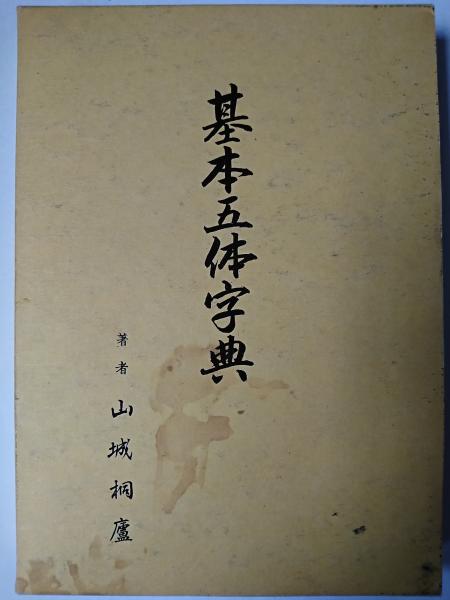 基本五体字典
著者 山城桐廬